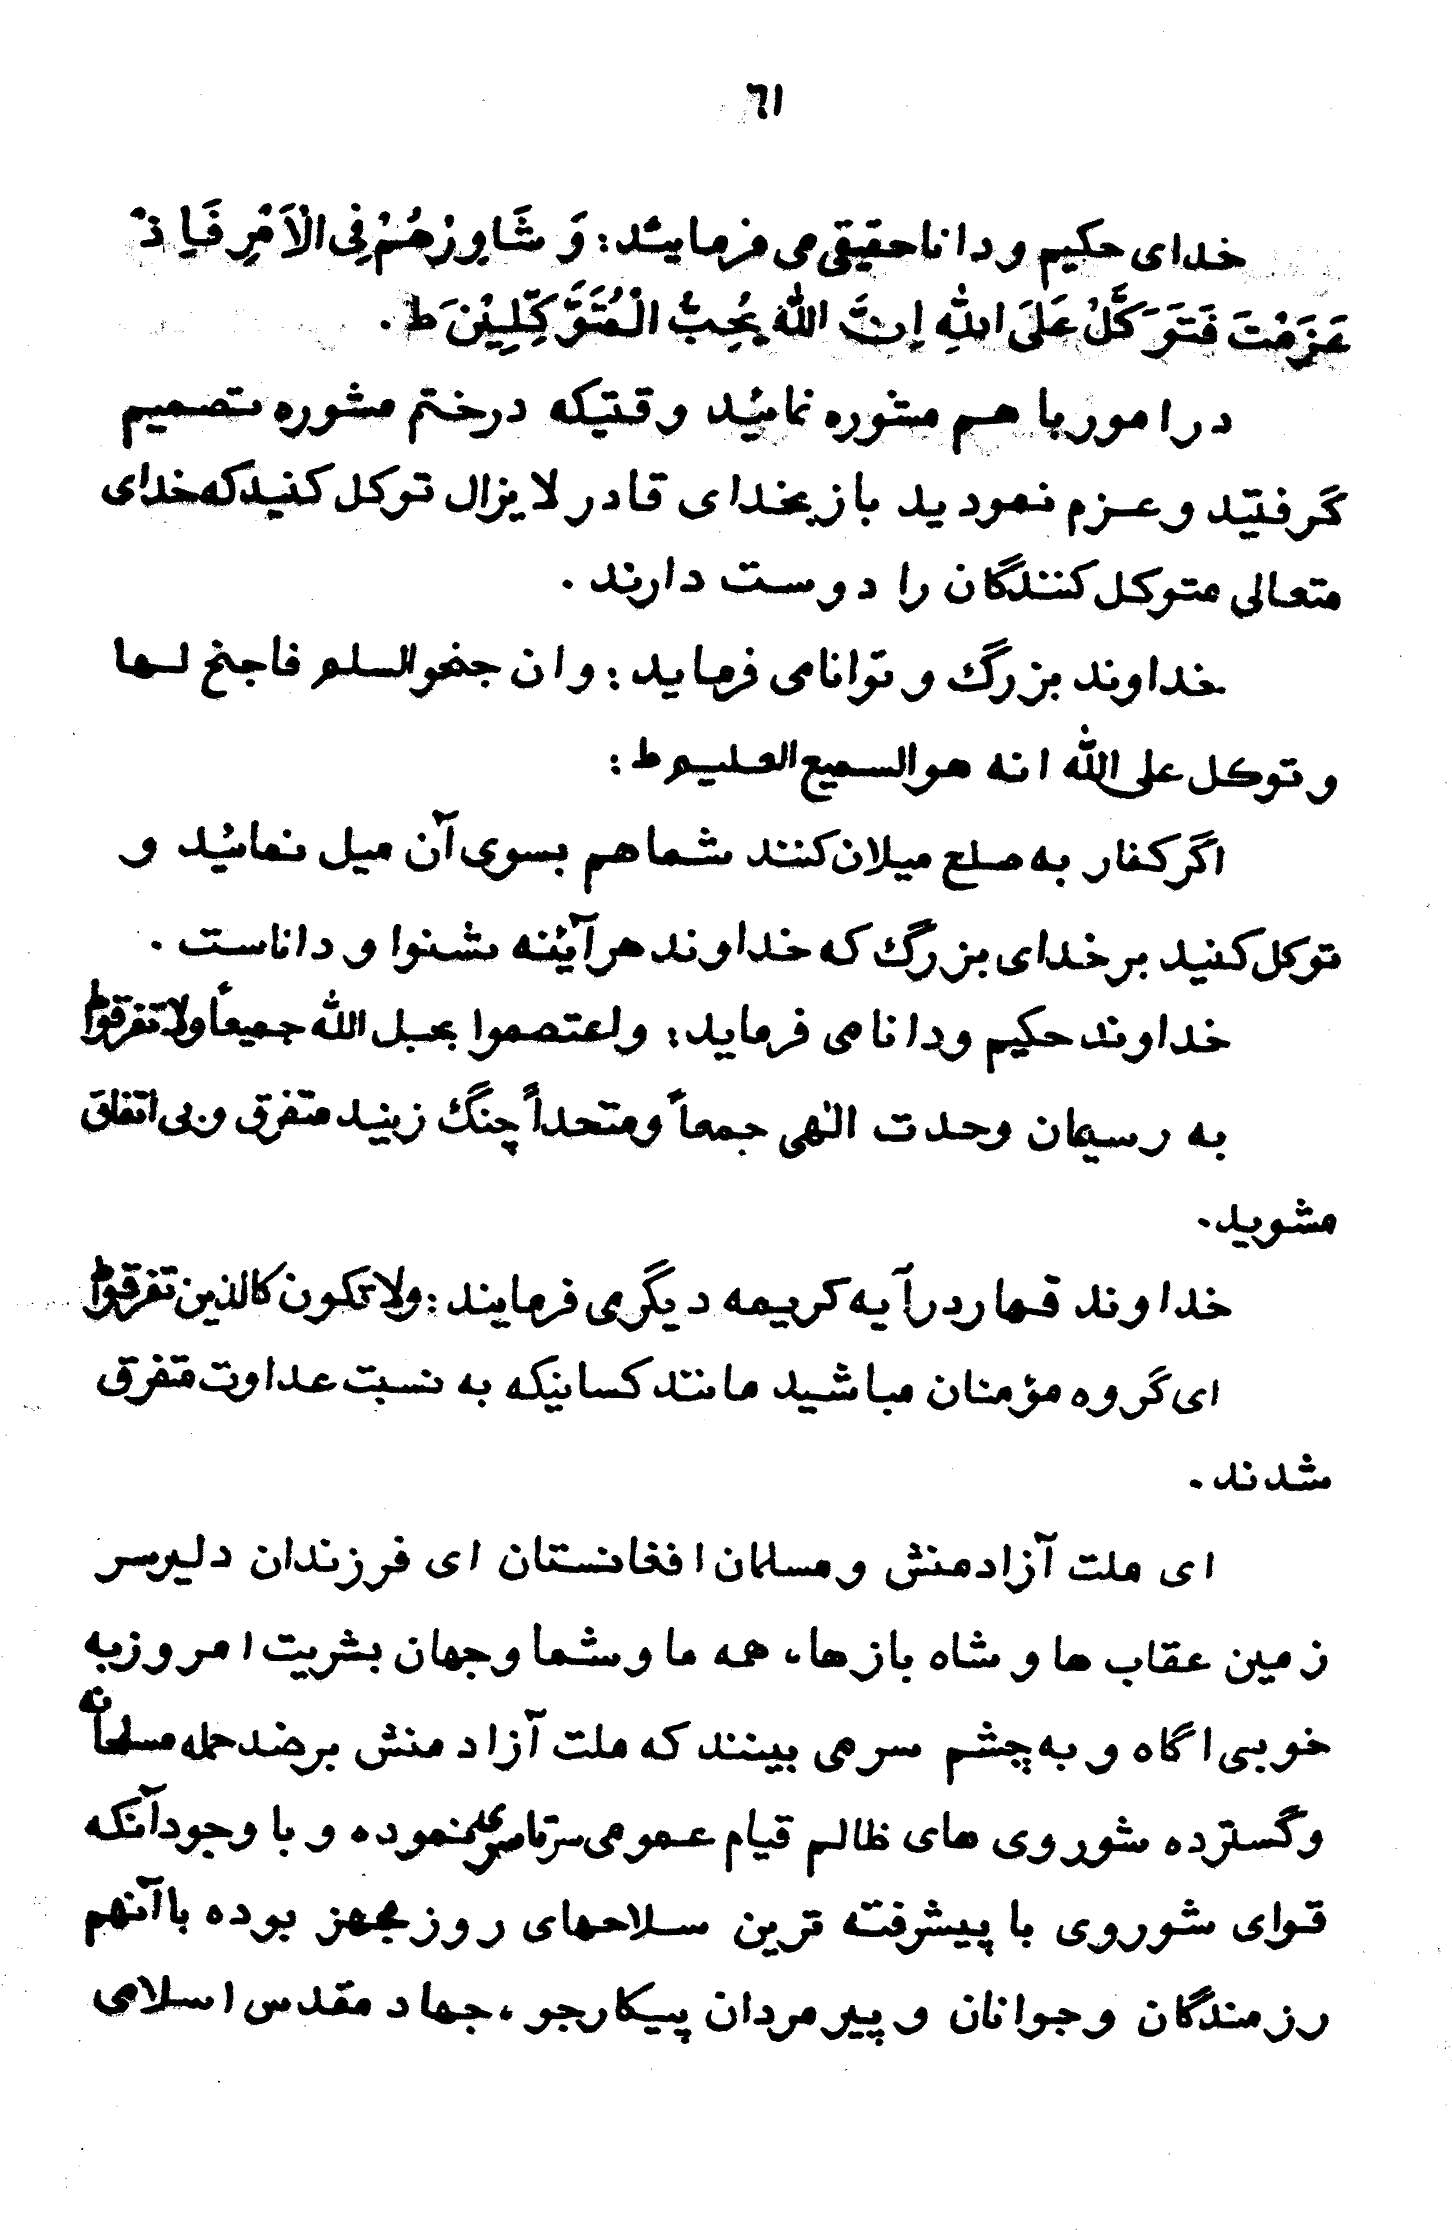 ٦١
خدای حکیم و دانا حقیقی می فرمایند: وَ شَاوِرْهُمْ فِی الْاَمْرِ فَاِ ذْ
عَزَمْتَ فَتَوَ كَّلْ عَلىَ اللهِ اِنَّ اللهَ يُحِبُّ الْمُتَوَّ كِّلِيْنَ ط .
در امور با هم مشوره نمائید وقتیکه درختم مشوره تصمیم
گرفتید و عزم نمودید باز بخدای قادر لایزال توکل کنید که خدای
متعالی متوکل کنندگان را دوست دارند .
خداوند بزرگ و توانا می فرماید : و ان جنحوالسلم فاجنح لها
و توکل علی الله انه هوالسمیع العلیم ط :
اگر کفار به صلح میلان کنند شما هم بسوی آن میل نمائید و
توکل کنید بر خدای بزرگ که خداوند هر آئینه شنوا و داناست .
خداوند حکیم و دانا می فرماید : واعتصموا بحبل الله جمیعاً ولا تفرقوا ط
به رسیمان وحدت الهی جمعاً و متحداً چنگ زبنید متفرق و بی اتفاق
مشوید .
خداوند قهار در آیه کریمه دیگری فرمایند : ولا تکون کالذین تفرقوا ط
ای گروه مؤمنان مباشید مانند کسانیکه به نسبت عداوت متفرق
شدند .
ای ملت آزادمنش و مسلمان افغانستان ای فرزندان دلیر سر
زمین عقاب ها و شاه بازها، همه ما و شما و جهان بشریت امروز به
خوبی اگاه و به چشم سر می بینند که ملت آزاد منش بر ضد حمله مسلحانه
و گسترده شوروی های ظالم قیام عمومی سرتاسری نموده و با وجود آنکه
قوای شوروی با پیشرفته ترین سلاحهای روز مجهز بوده با آنهم
رزمندگان و جوانان و پیر مردان پیکارجو، جهاد مقدس اسلامی